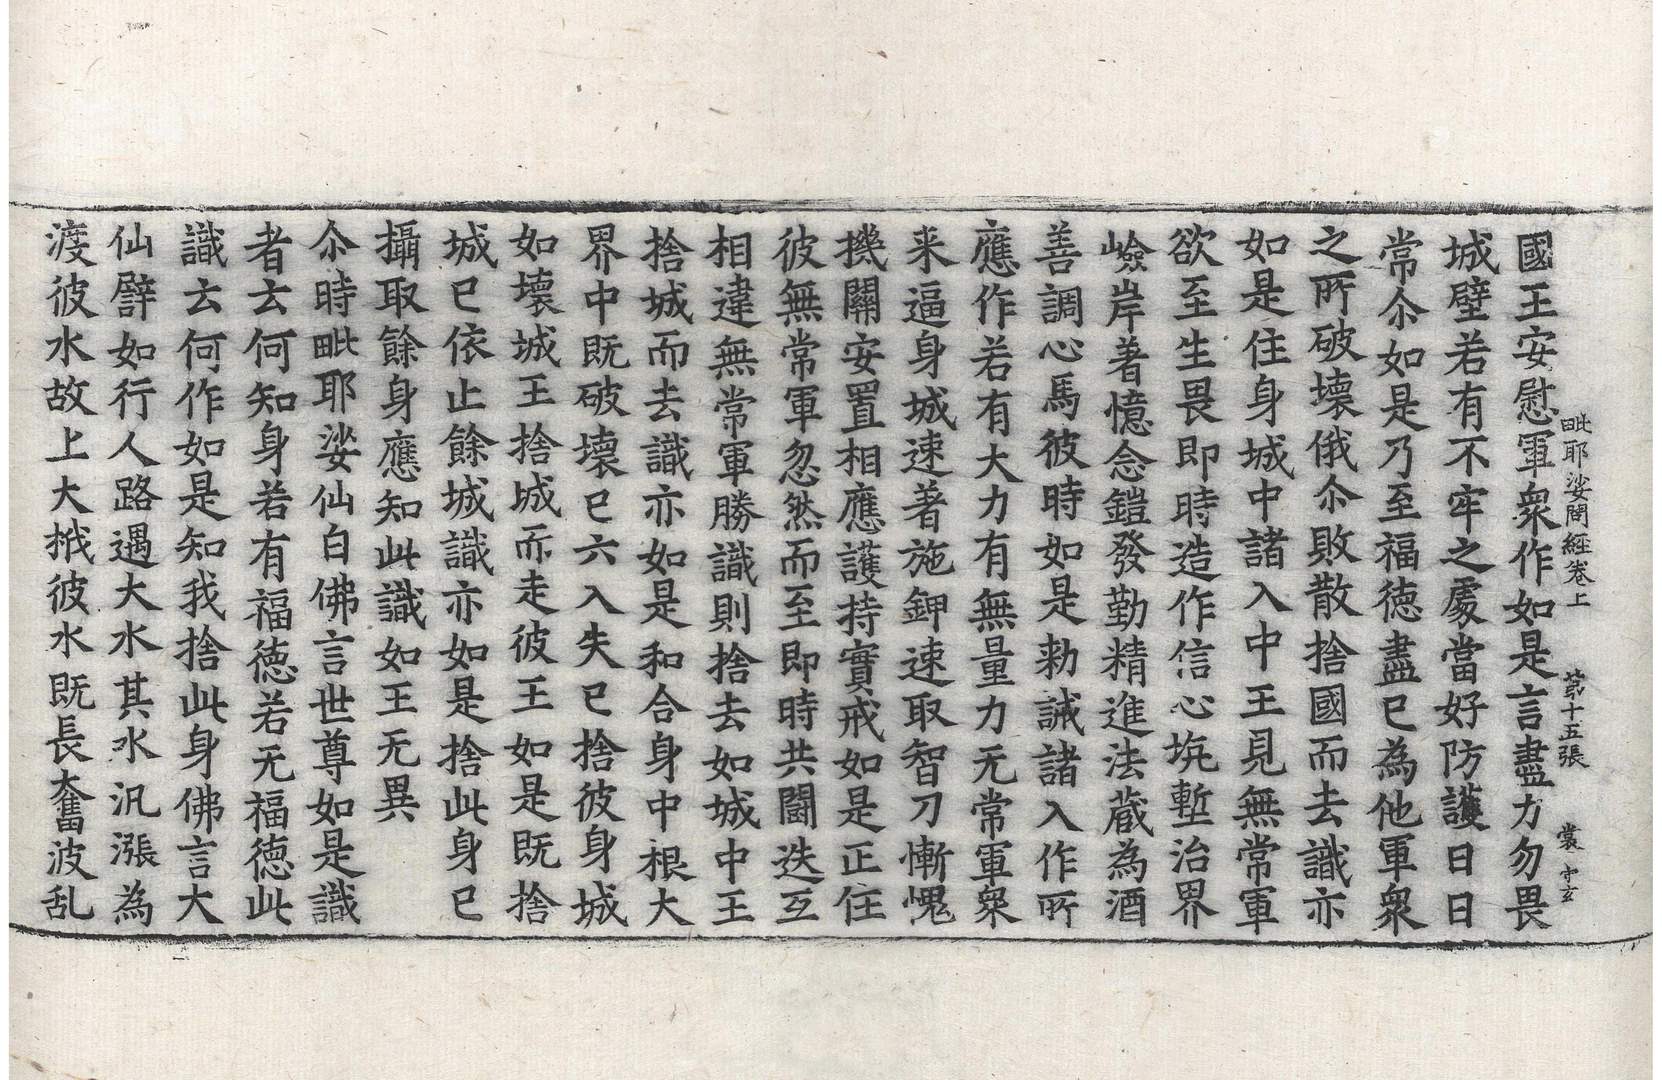 毗耶娑問經卷上 第十五張 裳 守玄
國王安慰軍衆作如是言盡力勿畏
城壁若有不牢之處當好防護日日
常尒如是乃至福德盡已為他軍衆
之所破壞俄尒敗散捨國而去識亦
如是住身城中諸入中王見無常軍
欲至生畏即時造作信心坑塹治界
嶮岸著憶念鎧發勤精進法藏為酒
善調心馬彼時如是勑誡諸入作所
應作若有大力有無量力无常軍衆
来逼身城速著施鉀速取智刀慚愧
機關安置相應護持實戒如是正住
彼無常軍忽然而至即時共鬪迭互
相違無常軍勝識則捨去如城中王
捨城而去識亦如是和合身中根大
界中既破壞已六入失已捨彼身城
如壞城王捨城而走彼王如是既捨
城已依止餘城識亦如是捨此身已
攝取餘身應知此識如王无異
尒時毗耶娑仙白佛言世尊如是識
者云何知身若有福德若无福德此
識云何作如是知我捨此身佛言大
仙譬如行人路遇大水其水汎漲為
渡彼水故上大栰彼水既長奮波乱